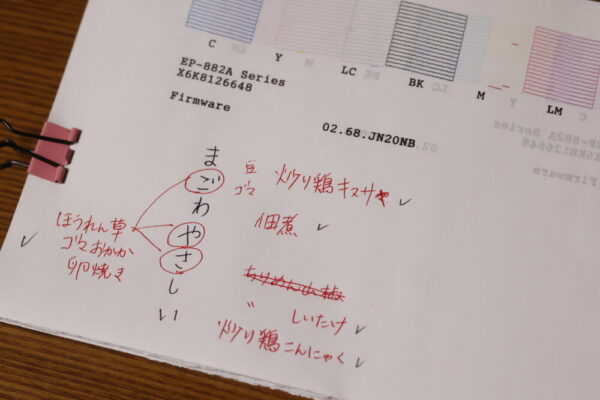 C
Y
LC
BK
M
LM
EP-882A Series
X6K8126648
Firmware
02.68.JN20NB
ま 豆
ご ゴマ 炒り鶏キヌサヤ
わ 佃煮
や
さ
し しいたけ
い 炒り鶏こんにゃく
ほうれん草
ゴマおかか
卵焼き